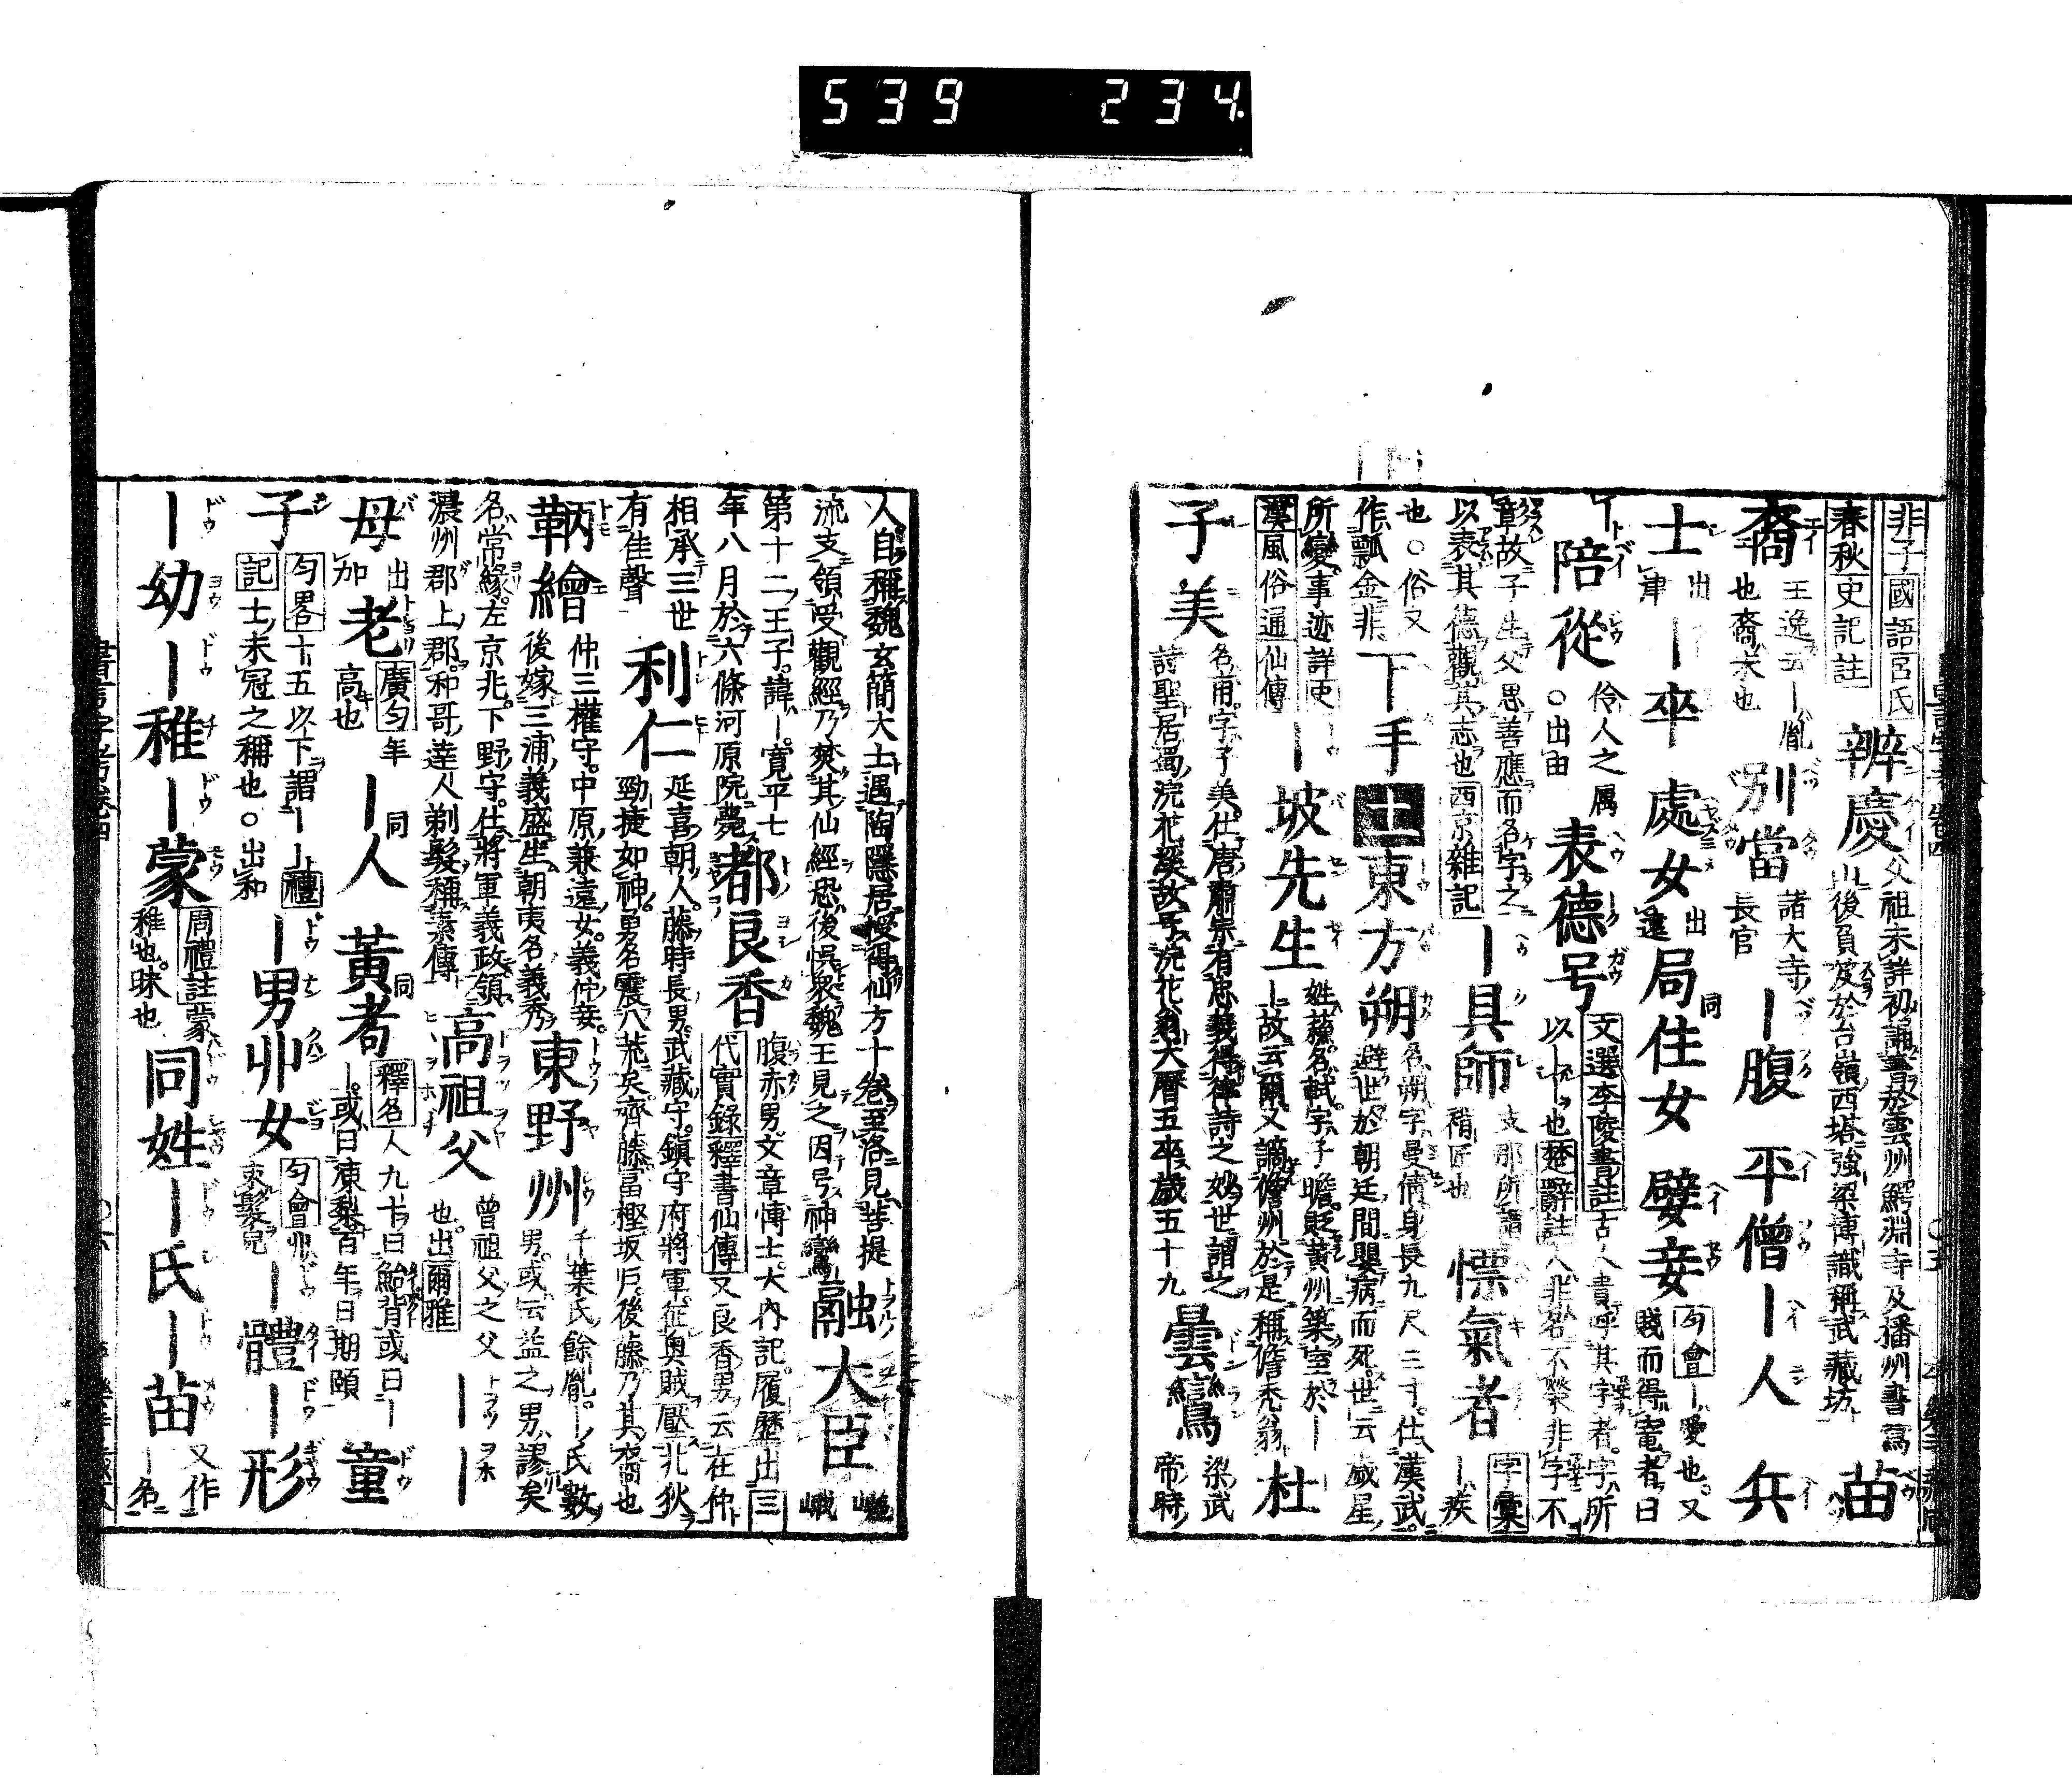 539 234.
非子 國語 呂氏
春秋 史記註
辨慶 父祖未詳初誦書於雲州鰐淵寺及播州書寫
山後負笈於台嶺西塔強梁博識稱武藏坊
苗
裔 王逸云｜胤
也裔末也
別當 諸大寺
長官
｜腹 平僧｜人 兵
士 出
津
｜｜卒 處女 出
局 同
佳女 嬖妾 匀會｜愛也又
賤而得寵者曰
｜
陪從 伶人之属
○出由
表德号 文選李陵書註古人貴呼其字者字所
以｜｜也楚辭註人非名不榮非字不
章故子生父思善應而名字之
以表其德觀其志也西京雜記
｜具師 支那所謂
稍匠也
慓氣者 字彙
｜疾
也○俗又
作瓢金非
下手 土
東方朔 名朔字曼倩身長九尺三寸仕漢武
避世於朝廷間嬰病而死世云歲星
所變事迹詳史
漢風俗通仙傳
｜坡先生 姓蘇名軾字子瞻貶黃州築室於｜
｜故云爾又謫儋州於是稱儋禿翁
杜
子美 名甫字子美仕唐肅宗有忠義得律詩之妙世謂之
詩聖居蜀浣花溪故号浣花翁大曆五卒歲五十九
曇鸞 梁武
帝時
人自稱魏玄簡大士遇陶隱居授得仙方十卷至洛見菩提
流支領受觀經乃焚其仙經恐後悞衆魏王見之因号神鸞
融大臣 嵯
峨
第十二王子諱｜寬平七
年八月於六條河原院薨
都良香 腹赤男文章博士大內記履歷出三
代實錄釋書仙傳又良香男云在仲
相承三世
有佳聲
利仁 延喜朝人藤時長男武藏守鎮守府將軍征奧賊壓北狄
勁捷如神勇名震八荒矣齊藤冨樫坂戶後藤乃其裔也
鞆繪 仲三權守中原兼遠女義仲妾
後嫁三浦義盛生朝夷名義秀
東野州 千葉氏餘胤｜氏數
男或云益之男謬矣
名常緣左京兆下野守仕將軍義政領
濃州郡上郡和哥達人剃髮稱素傳
高祖父 曾祖父之父
也出爾雅
｜｜
母 出
加
老 廣匀年
高也
｜人 同
黃耇 同
釋名人九十曰鮐背或曰｜
｜或曰凍梨百年曰期頤
童
子 匀畧十五以下謂｜｜禮
記士未冠之稱也○出和
｜男 丱女 匀會丱
束髮皃
｜體｜形
｜幼｜稚｜蒙 周禮註蒙
稚也昧也
同姓｜氏｜苗 又作
｜名